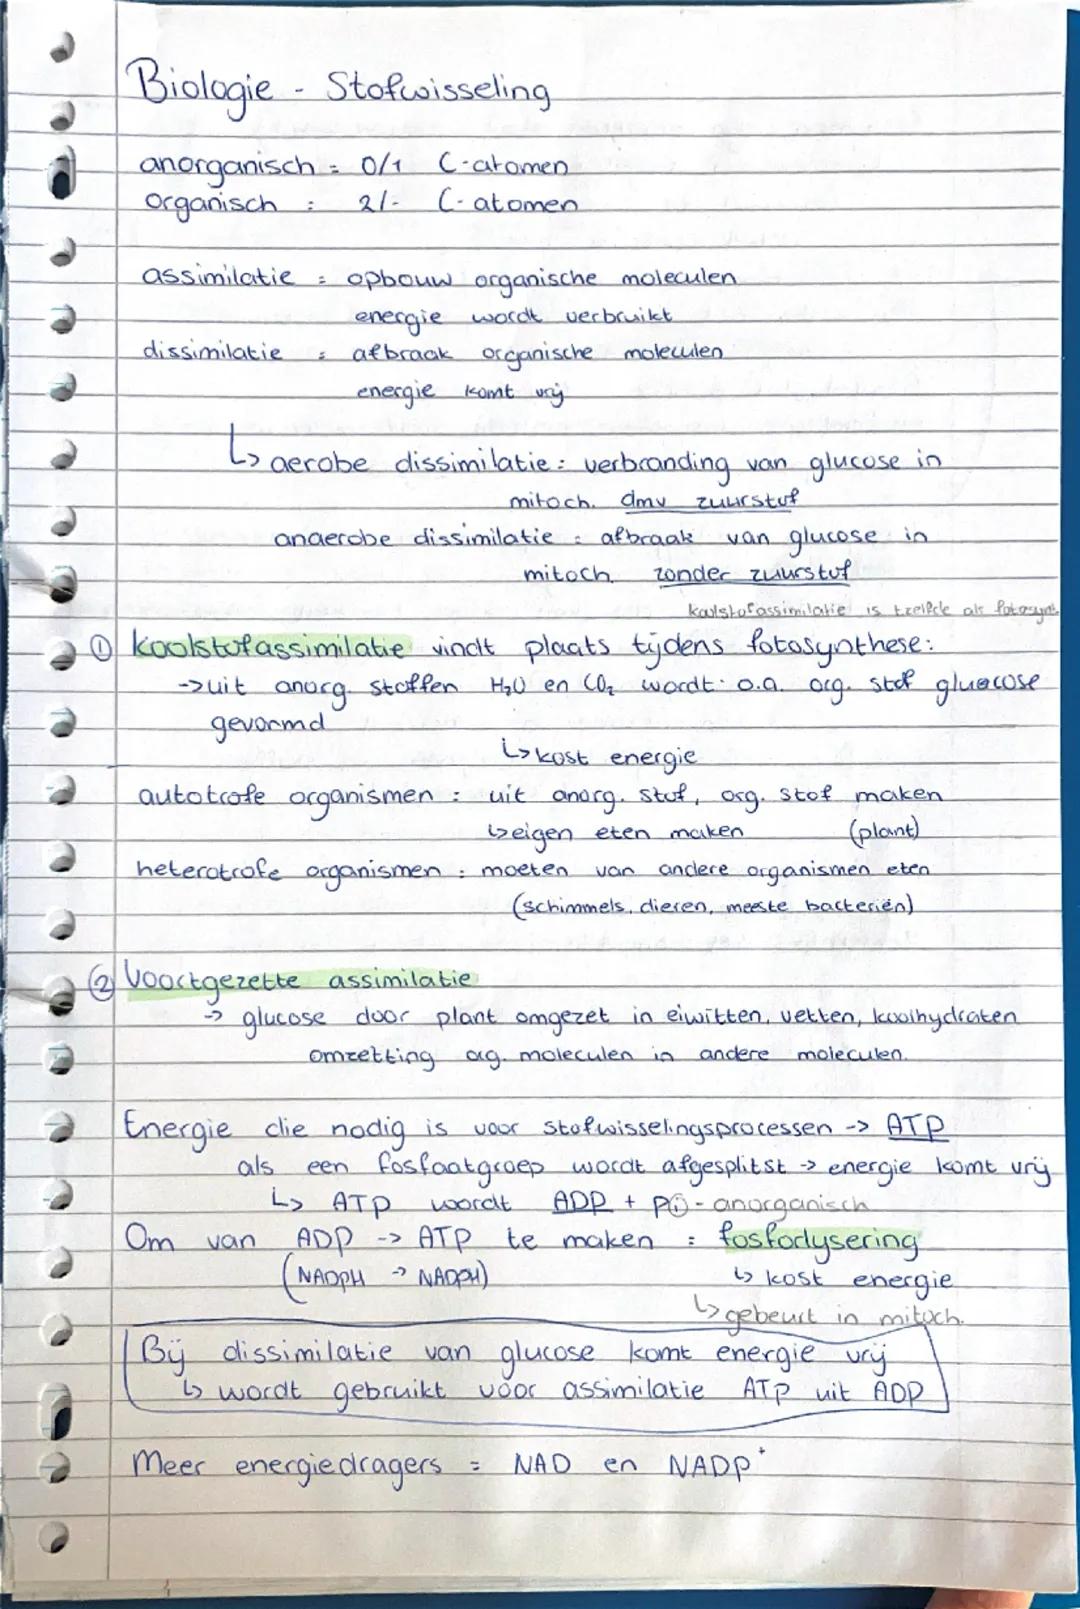 Biologie - Stofwisseling
anorganisch = 0/1 C-atomen
organisch : 2/- C-atomen
assimilatie = opbouw organische moleculen
energie wordt verbruikt
dissimilatie = afbraak organische moleculen
energie komt vrij
↳ aerobe dissimilatie: verbranding van glucose in
mitoch. dmv zuurstof
anaerobe dissimilatie = afbraak van glucose in
mitoch. zonder zuurstof
koolstofassimilatie is tzelfde als fotosynt.
① koolstofassimilatie vindt plaats tijdens fotosynthese:
-> uit anorg. stoffen H₂O en CO₂ wordt o.a. org. stof glucose
gevormd
↳ kost energie
autotrofe organismen : uit anorg. stof, org. stof maken
↳ eigen eten maken (plant)
heterotrofe organismen : moeten van andere organismen eten
(schimmels, dieren, meeste bacteriën)
② Voortgezette assimilatie
-> glucose door plant omgezet in eiwitten, vetten, koolhydraten
omzetting org. moleculen in andere moleculen.
Energie die nodig is voor stofwisselingsprocessen -> ATP
als een fosfaatgroep wordt afgesplitst -> energie komt vrij
↳ ATP wordt ADP + Pⓘ - anorganisch
Om van ADP -> ATP te maken = fosforlysering
(NADPH -> NADPH) ↳ kost energie
↳ gebeurt in mitoch.
Bij dissimilatie van glucose komt energie vrij
↳ wordt gebruikt voor assimilatie ATP uit ADP
Meer energiedragers = NAD en NADP⁺